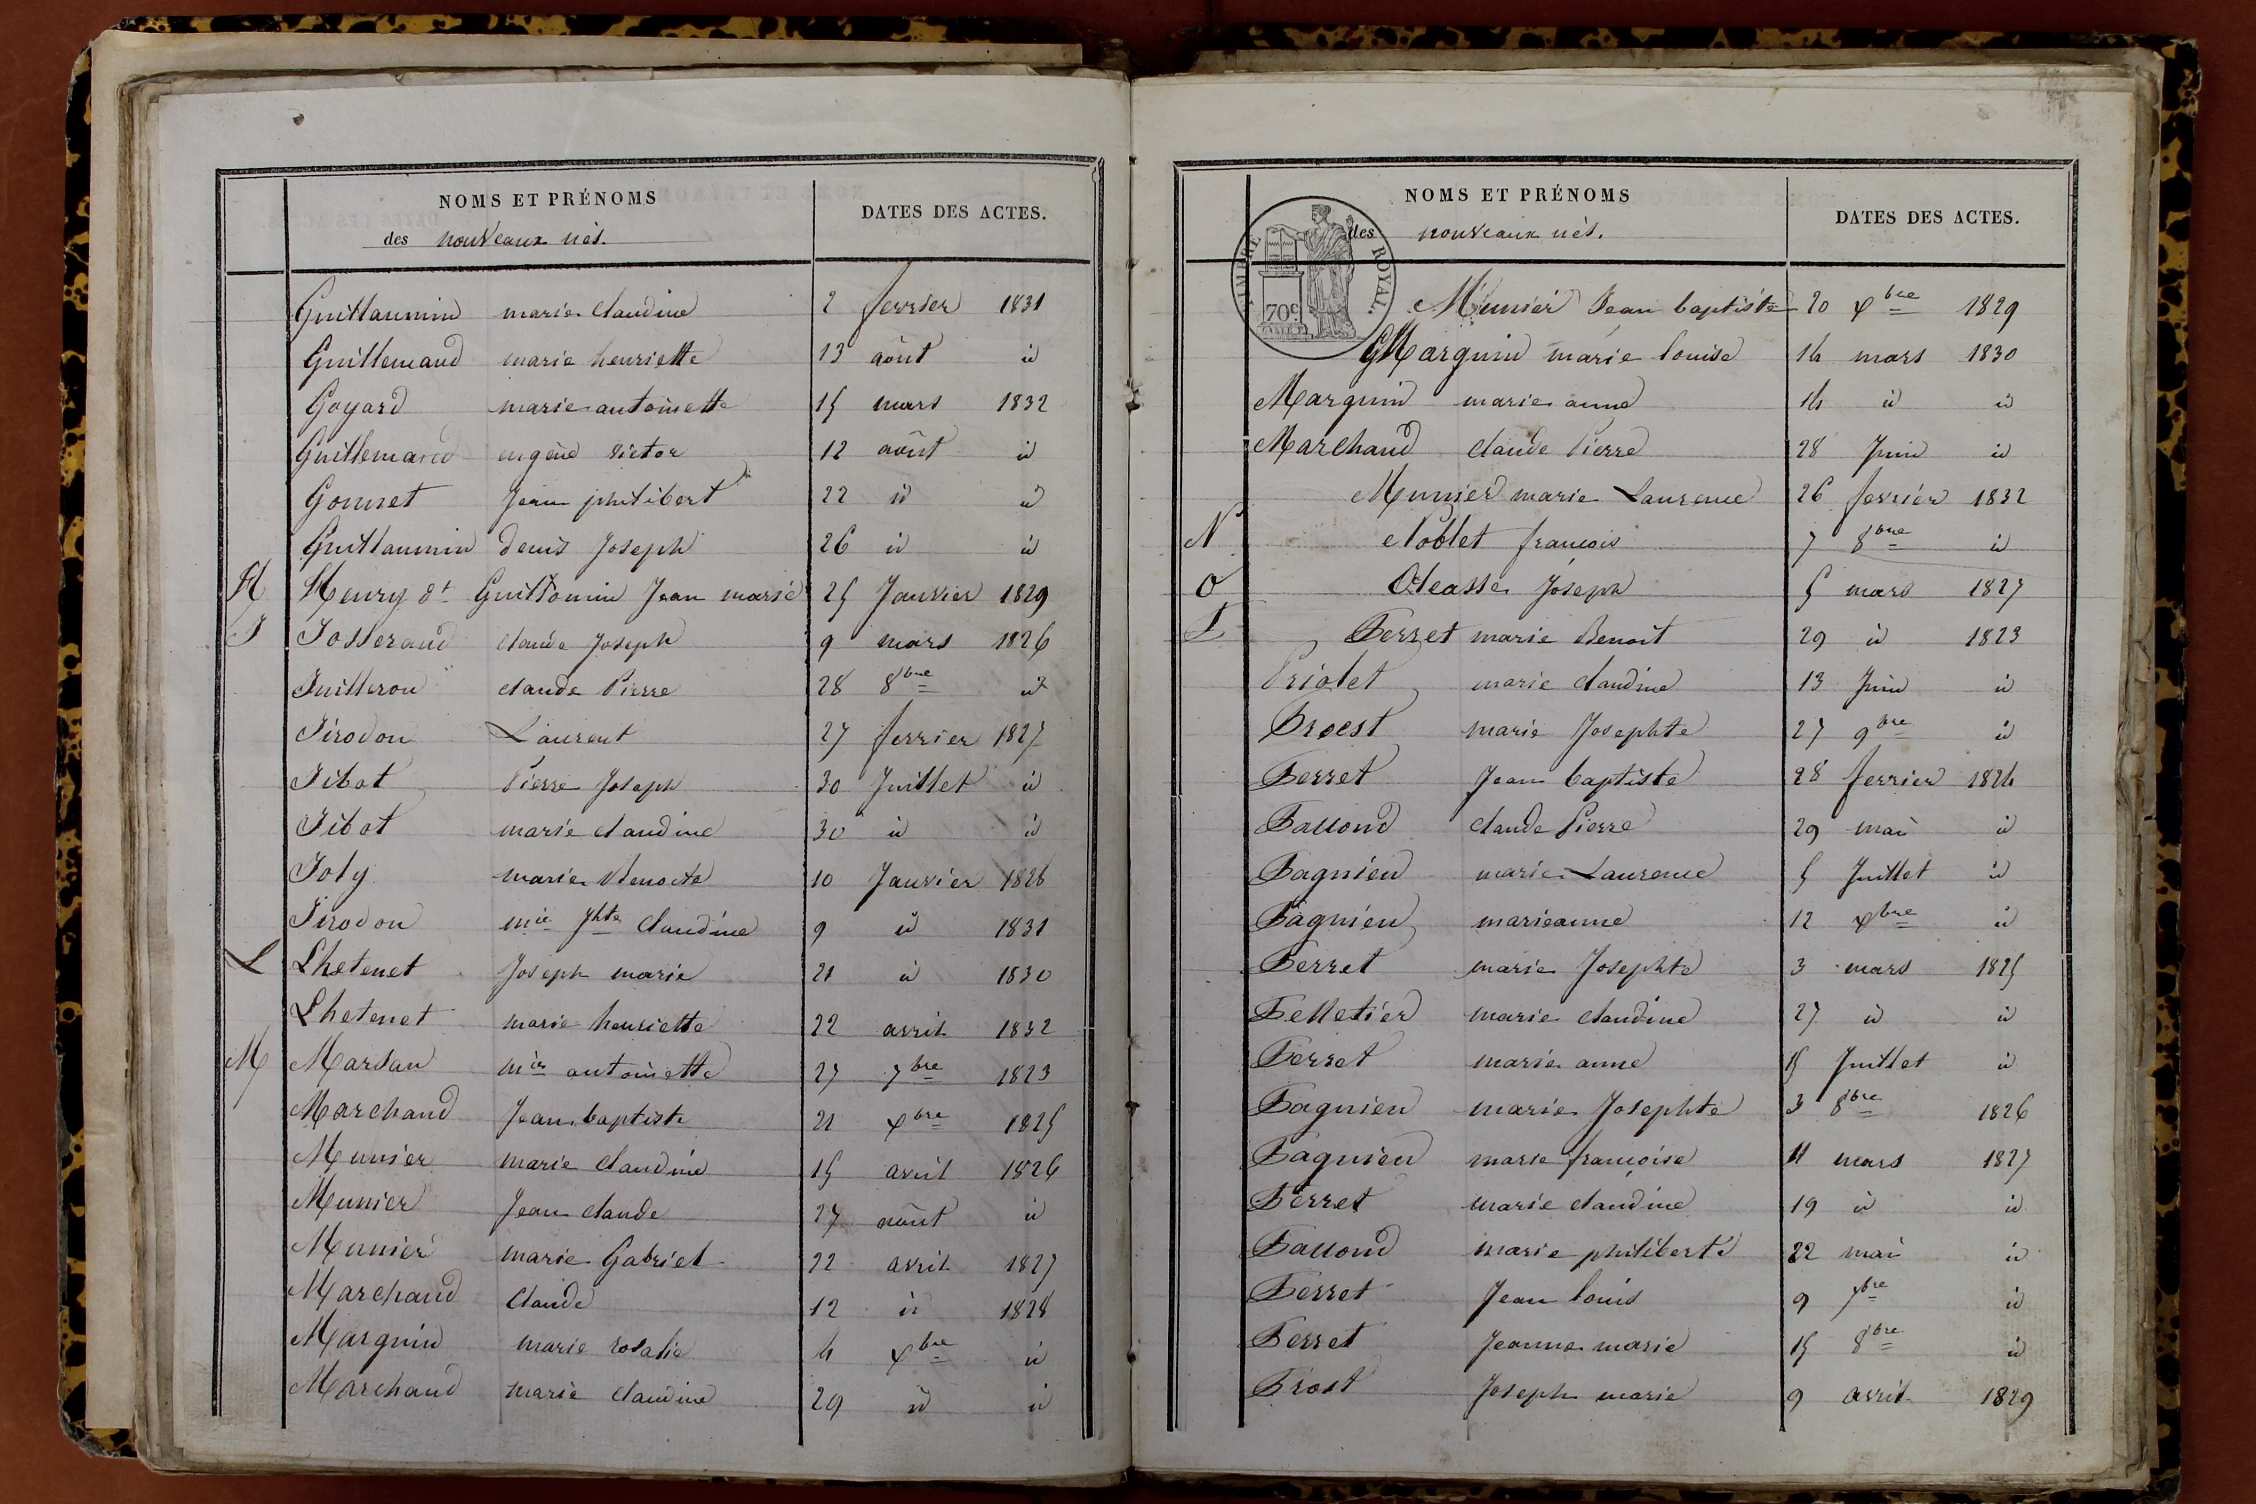 NOMS ET PRÉNOMS
des nouveaux nés.
DATES DES ACTES.
Guillaumin marie claudine 2 fevrier 1831
Guillemaud marie henriette 13 août id
Goyard marie antoinette 15 mars 1832
Guillemaud eugène victor 12 août id
Gonnet Jean philibert 22 id id
Guillaumin denis Joseph 26 id id
H Henry dt Guillaumin Jean marie 25 Janvier 1829
J Josserand claude Joseph 9 mars 1826
Juilleron claude Pierre 28 8bre id
Jirodon Laurent 27 fevrier 1827
Jibot Pierre Joseph 30 Juillet id
Jibot marie claudine 30 id id
Joly marie Benoite 10 Janvier 1828
Jirodon mie Jhte claudine 9 id 1831
L Lhetenet Joseph marie 21 id 1830
Lhetenet marie henriette 22 avril 1832
M Marsan mie antoinette 27 7bre 1823
Marchand Jean baptiste 21 xbre 1825
Munier marie claudine 15 avril 1826
Munier Jean claude 27 août id
Munier marie Gabriel 22 avril 1827
Marchand Claude 12 id 1828
Marguin marie rosalie 4 xbre id
Marchand marie claudine 29 id id
NOMS ET PRÉNOMS
des nouveaux nés.
DATES DES ACTES.
TIMBRE ROYAL
70c
Munier Jean baptiste 20 xbre 1829
Marguin marie louise 14 mars 1830
Marguin marie anne 14 id id
Marchand claude Pierre 28 Juin id
Munier marie Laurence 26 fevrier 1832
N Noblet francois 7 8bre id
O Oleasse Joseph 5 mars 1827
P Perret marie Benoit 29 id 1823
Priolet marie claudine 13 Juin id
Proest marie Josephte 27 9bre id
Perret Jean baptiste 28 fevrier 1824
Pallond claude Pierre 29 mai id
Pagnien marie Laurence 5 Juillet id
Pagnien marieanne 12 xbre id
Perret marie Josephte 3 mars 1825
Pelletier marie claudine 27 id id
Perret marie anne 15 Juillet id
Pagnien marie Josephte 3 8bre 1826
Pagnien marie françoise 11 mars 1827
Perret marie claudine 19 id id
Pallond marie philiberte 22 mai id
Perret Jean louis 9 7bre id
Perret Jeanne marie 15 8bre id
Prost Joseph marie 9 avril 1829